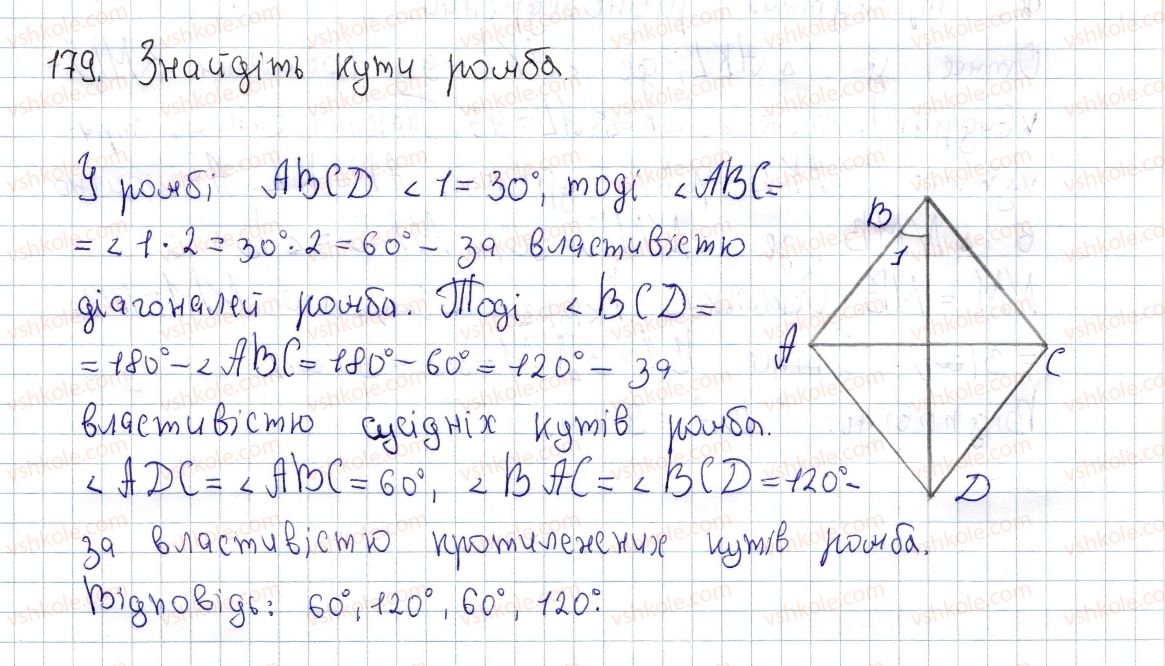 179. Знайдіть кути ромба.
У ромбі ABCD <1=30°, тоді <ABC=
=<1·2=30°·2=60° – за властивістю
діагоналей ромба. Тоді <BCD=
=180°-<ABC=180°-60°=120° – за
властивістю сусідніх кутів ромба.
<ADC=<ABC=60°, <BAC=<BCD=120°-
за властивістю протилежних кутів ромба.
Відповідь: 60°, 120°, 60°, 120°.
B
1
A
C
D
vshkole.com